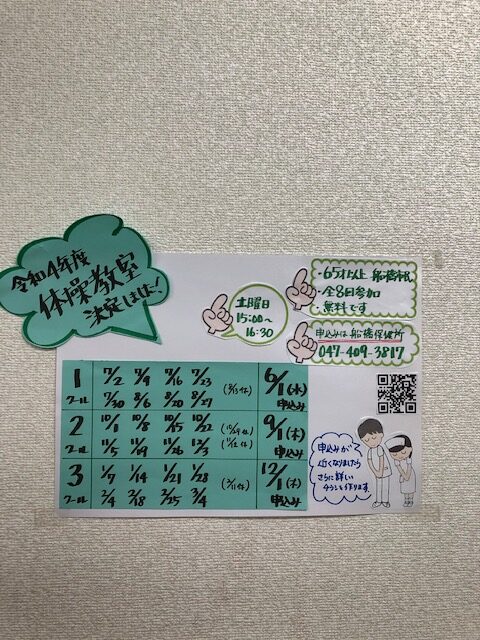 令和4年度
体操教室
決定しました!
土曜日
15:00〜
16:30
・65才以上 船橋市民
・全8回参加
・無料です
申込みは船橋保健所
047-409-3817
1クール 7/2 7/9 7/16 7/23 6/1(水)
7/30 8/6 8/20 8/27 (8/13休) 申込み
2クール 10/1 10/8 10/15 10/22 (10/29休) 9/1(木)
11/5 11/19 11/26 12/3 (11/12休) 申込み
3クール 1/7 1/14 1/21 1/28 12/1(木)
2/4 2/18 2/25 3/4 (2/11休) 申込み
申込みが
近くなりましたら
さらに詳しい
チラシを作ります